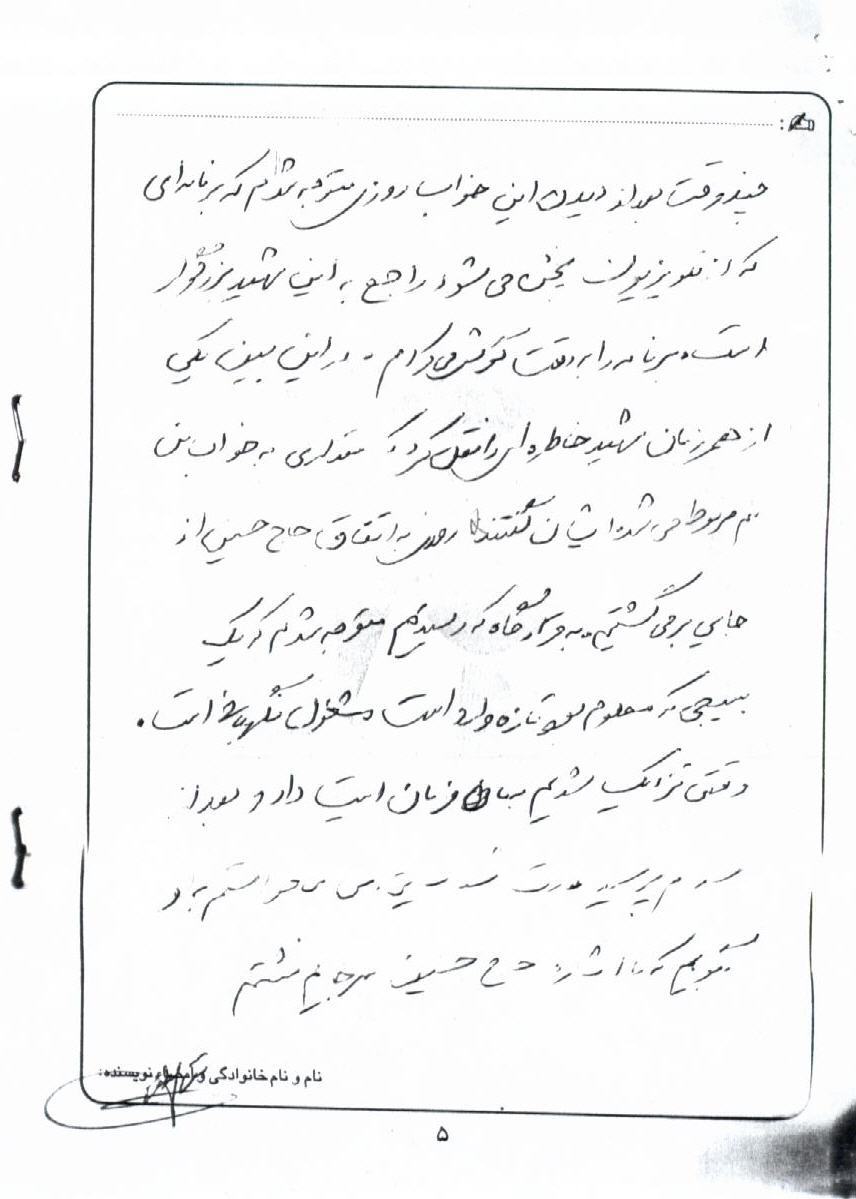 چند وقت بعد از دیدن این خواب روزی متوجه شدم که برنامه‌ای
که از تلویزیون پخش می شود راجع به این شهید بزرگوار
است. برنامه را به دقت گوش می کردم - در این بین یکی
از همرزمان شهید خاطره‌ای را نقل کرد که مقداری به خواب من
هم مربوط می شد ایشان گفتند: روزی به اتفاق حاج حسین از
جایی برمی گشتیم. به قرارگاه که رسیدیم متوجه شدم که یک
بسیجی که معلوم بود تازه وارد است مشغول نگهبانی است.
وقتی نزدیک شدیم بما فرمان ایست داد و بعد از
پرسید می خواستم به او
بگویم که با اشاره حاج حسین سرجایم نشستم
نام و نام خانوادگی و امضاء نویسنده:
۵